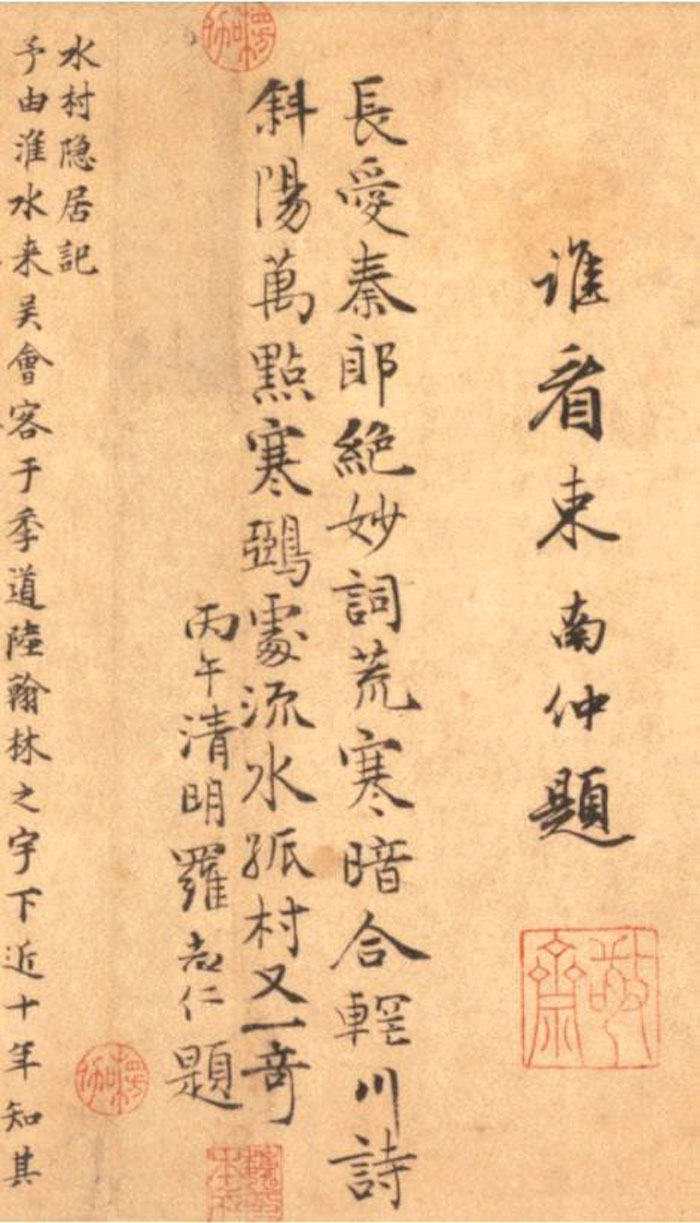 誰看東南仲題
敬齋
長愛秦郎絶妙詞荒寒暗合輞川詩
斜陽萬點寒鵶處流水孤村又一奇
丙午清明羅志仁題
水村隐居記
予由淮水来吴會客于季道陸翰林之宇下近十年知其